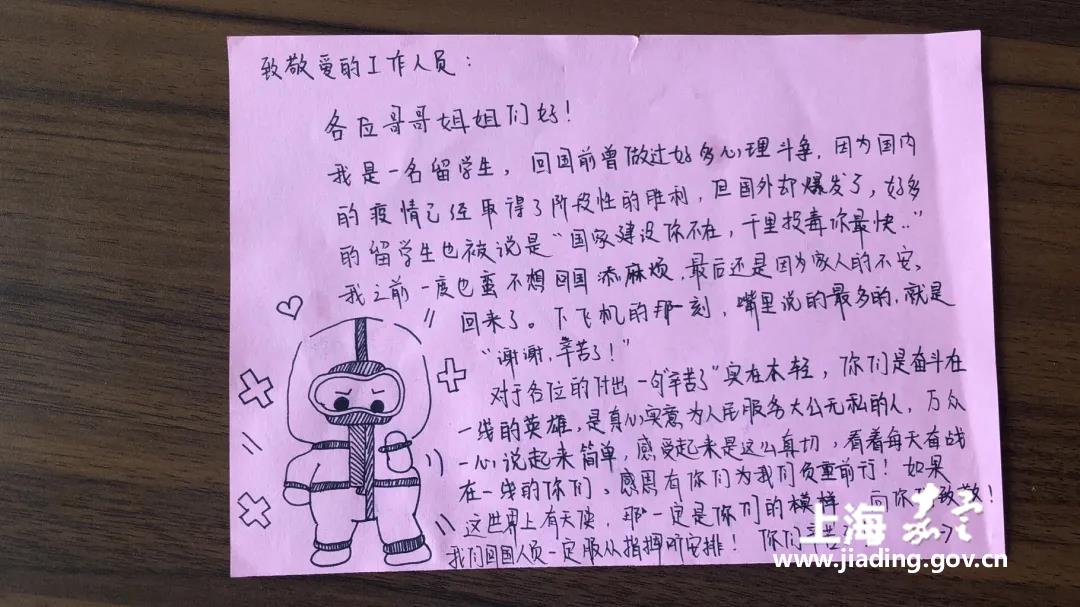 致敬爱的工作人员：
各位哥哥姐姐们好！
我是一名留学生，回国前曾做过好多心理斗争，因为国内
的疫情已经取得了阶段性的胜利，但国外却爆发了，好多
的留学生也被说是“国家建设你不在，千里投毒你最快..”
我之前一度也蛮不想回国添麻烦，最后还是因为家人的不安、
回来了。下飞机的那一刻，嘴里说的最多的，就是
“谢谢，辛苦了！”
对于各位的付出一句“辛苦了”实在太轻，你们是奋斗在
一线的英雄，是真心实意为人民服务大公无私的人，万众
一心说起来简单，感受起来是这么真切，看着每天奋战
在一线的你们，感恩有你们为我们负重前行！如果
这世界上有天使，那一定是你们的模样 向你 致敬！
我们回国人员一定服从指挥听安排！你们辛苦
上海嘉定
www.jiading.gov.cn